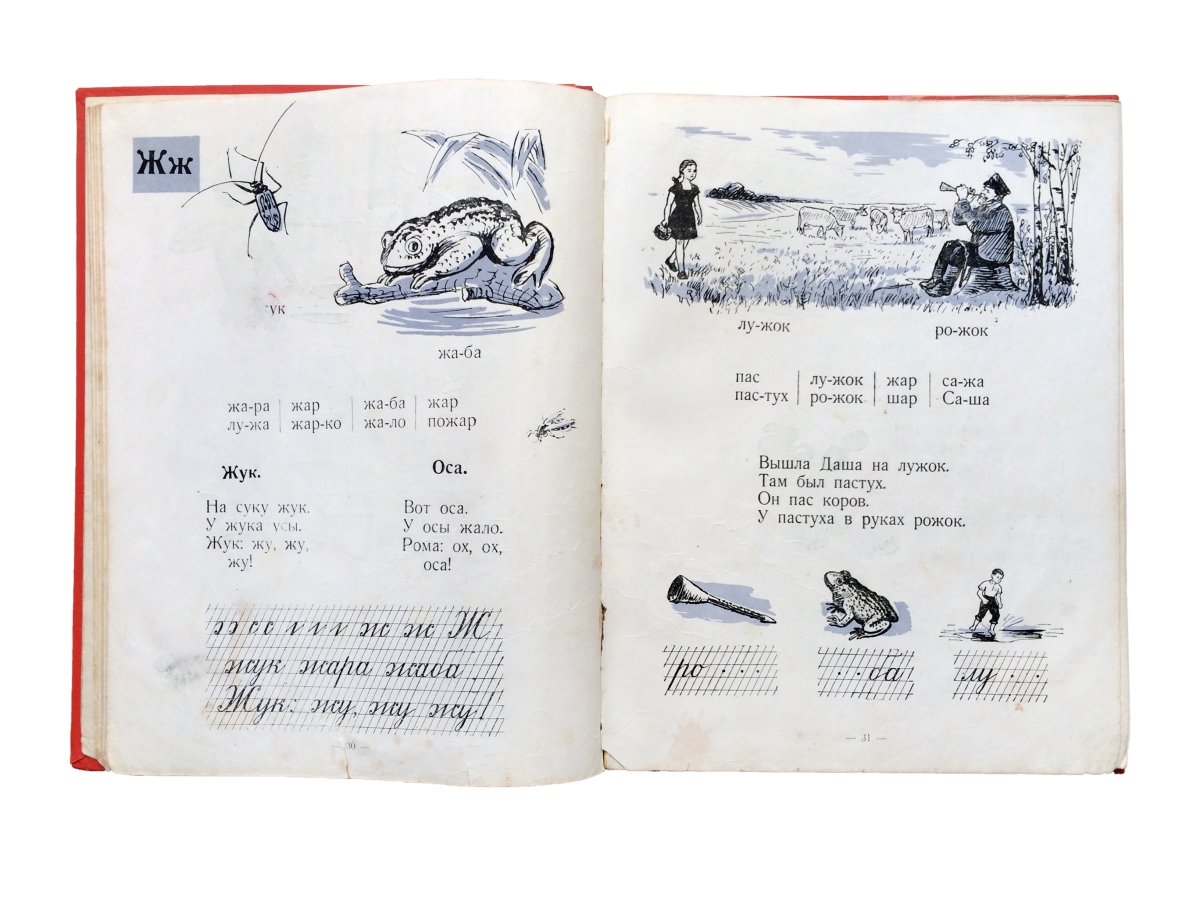 Жж
жа-ба
жа-ра | жар | жа-ба | жар
лу-жа | жар-ко | жа-ло | пожар
Жук.
На суку жук.
У жука усы.
Жук: жу, жу,
жу!
Оса.
Вот оса.
У осы жало.
Рома: ох, ох,
оса!
ж ж Ж
жук жара жаба.
Жук: жу, жу жу!
— 30 —
лу-жок
ро-жок
пас | лу-жок | жар | са-жа
пас-тух | ро-жок | шар | Са-ша
Вышла Даша на лужок.
Там был пастух.
Он пас коров.
У пастуха в руках рожок.
ро . . . .
. . ба
лу . . .
— 31 —